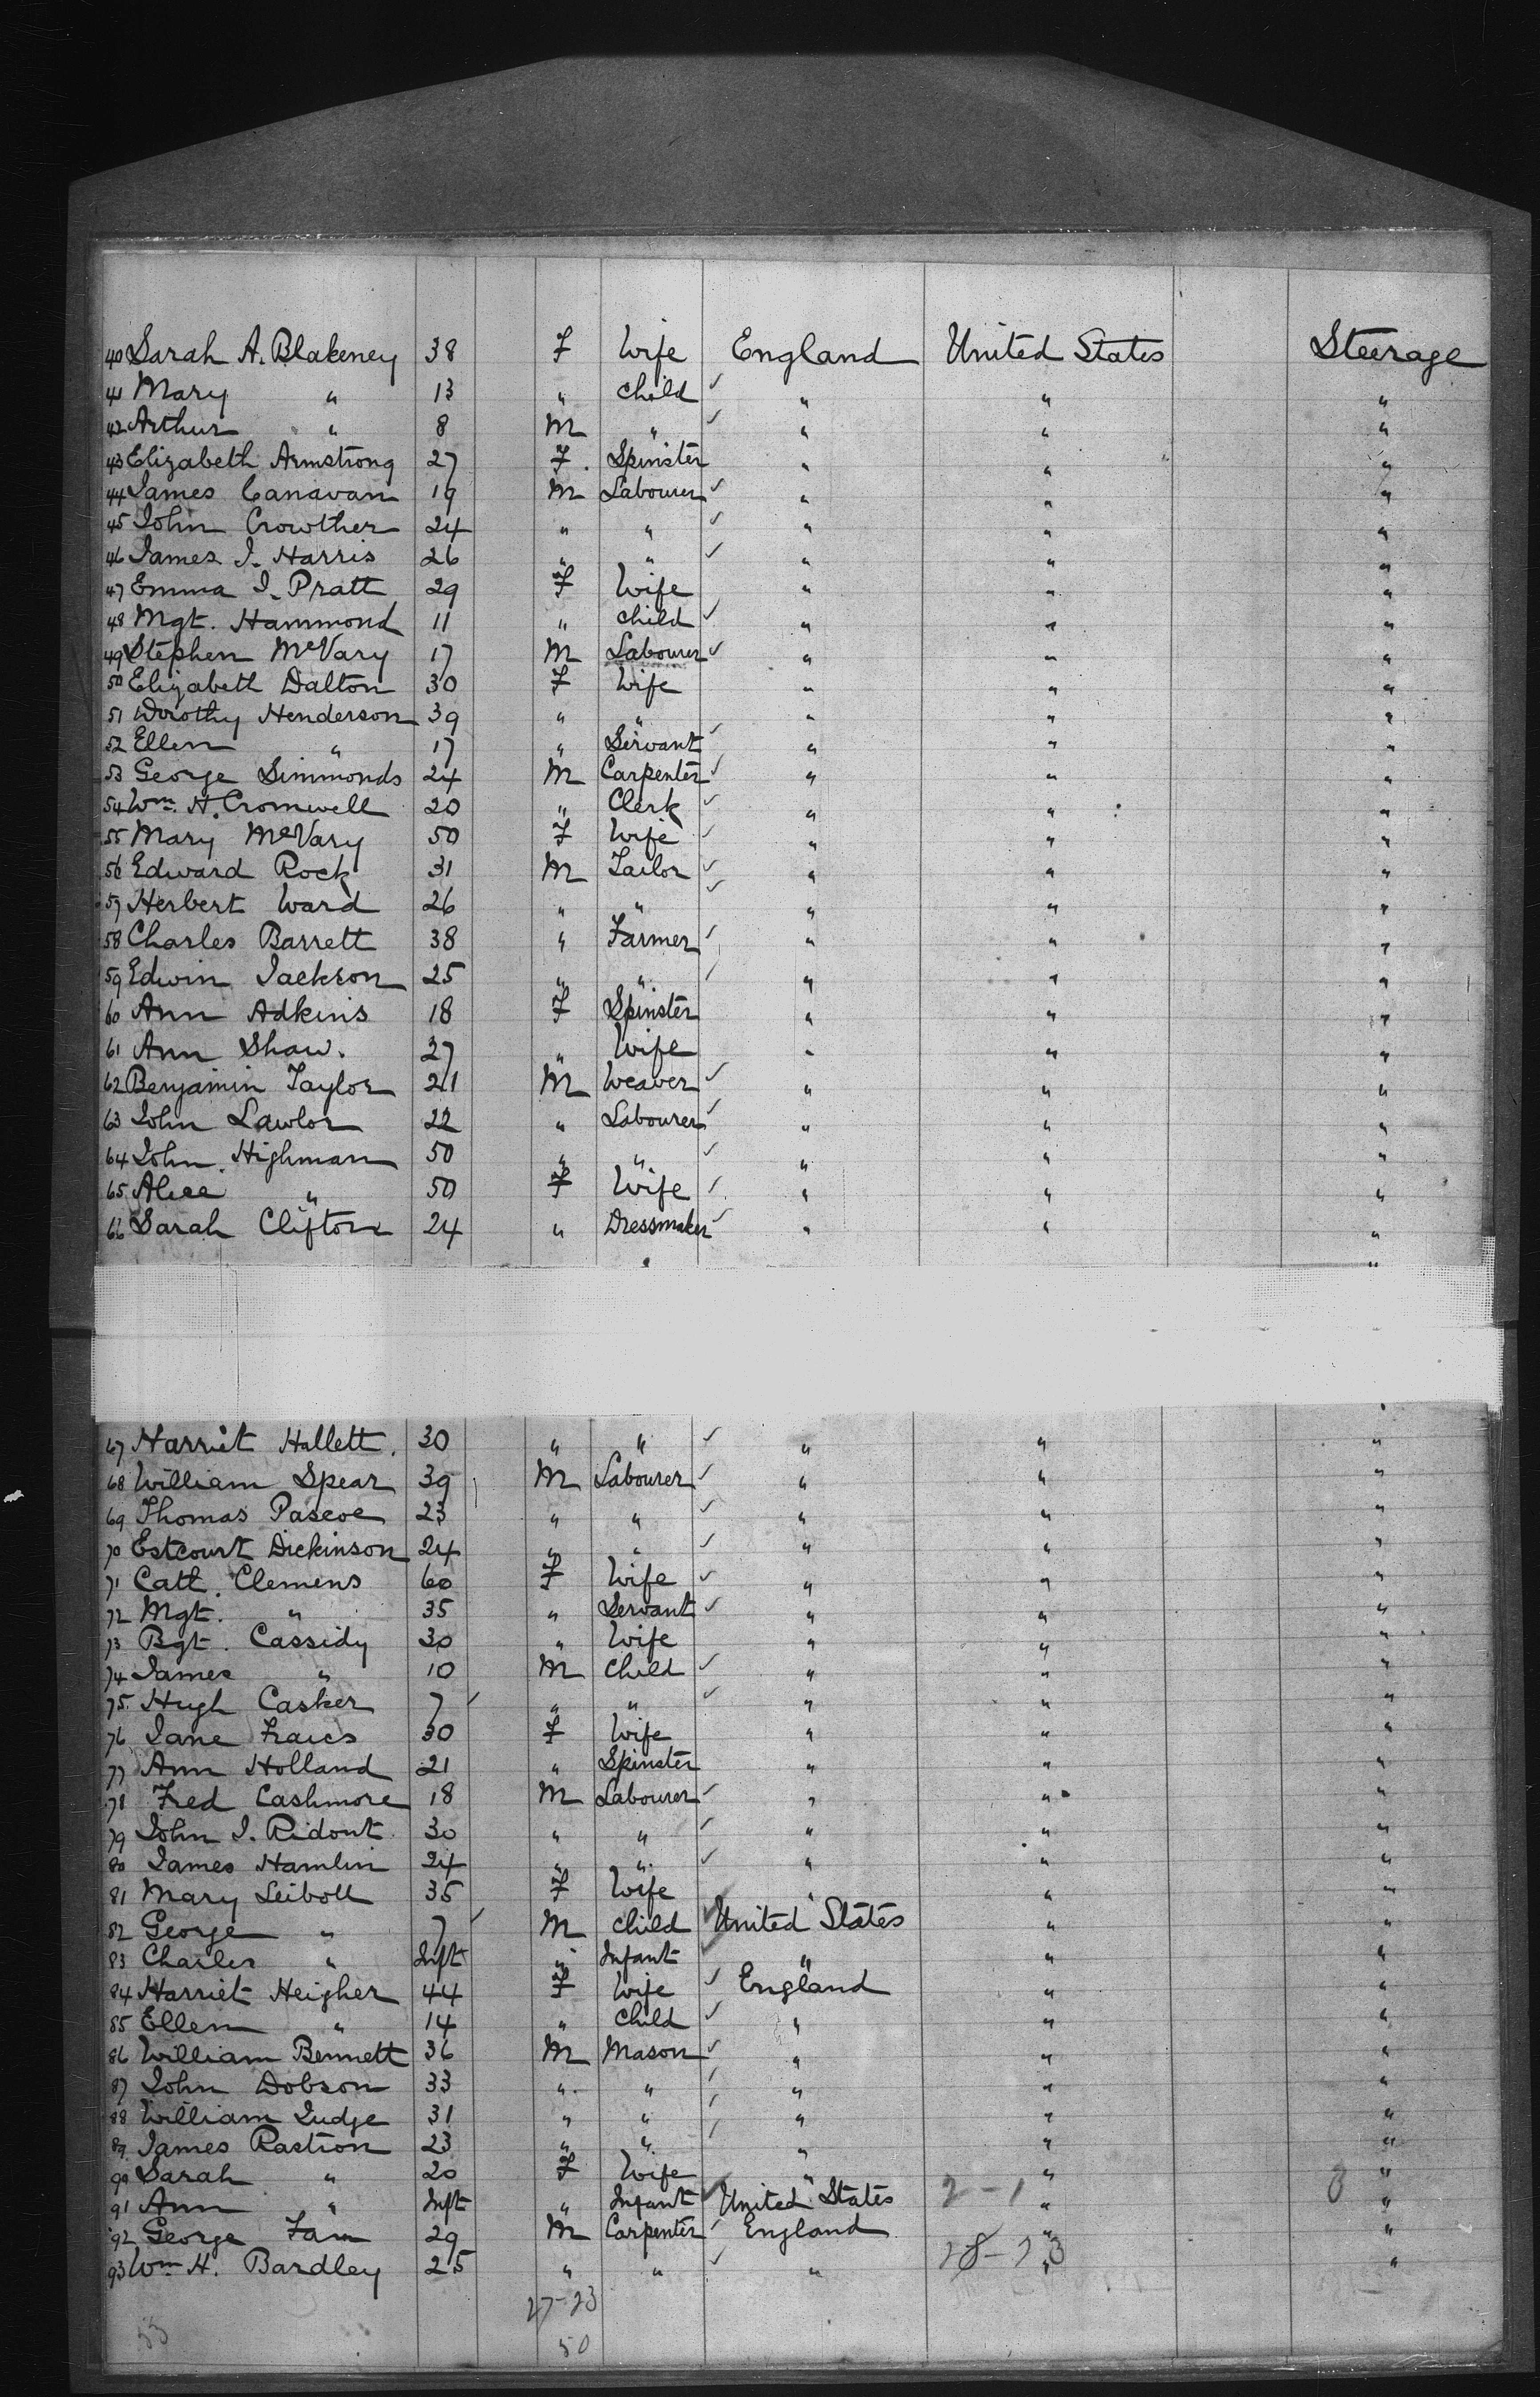 40 Sarah A. Blakeney 38 F Wife England United States Steerage
41 Mary " 13 " Child ✓ " " "
42 Arthur " 8 M " ✓ " " "
43 Elizabeth Armstrong 27 F. Spinster " " "
44 James Canavan 19 M Labourer ✓ " " "
45 John Crowther 24 " " ✓ " " "
46 James J. Harris 26 " " ✓ " " "
47 Emma J. Pratt 29 F Wife " " "
48 Mgt. Hammond 11 " Child ✓ " " "
49 Stephen McVary 17 M Labourer ✓ " " "
50 Elizabeth Dalton 30 F Wife " " "
51 Dorothy Henderson 39 " " " " "
52 Ellen " 17 " Servant ✓ " " "
53 George Simmonds 24 M Carpenter ✓ " " "
54 Wm. H. Cromwell 20 " Clerk ✓ " " "
55 Mary McVary 50 F Wife ✓ " " "
56 Edward Rock 31 M Tailor ✓ " " "
57 Herbert Ward 26 " " ✓ " " "
58 Charles Barrett 38 " Farmer ✓ " " "
59 Edwin Jackson 25 " " ✓ " " "
60 Ann Adkins 18 F Spinster " " "
61 Ann Shaw. 27 " Wife " " "
62 Benjamin Taylor 21 M Weaver ✓ " " "
63 John Lawlor 22 " Labourer ✓ " " "
64 John Highman 50 " " ✓ " " "
65 Alice " 50 F Wife ✓ " " "
66 Sarah Clifton 24 " Dressmaker ✓ " " "
67 Harriet Hallett. 30 " " ✓ " " "
68 William Spear 39 M Labourer ✓ " " "
69 Thomas Pascoe 23 " " ✓ " " "
70 Estcourt Dickinson 24 " " ✓ " " "
71 Cath. Clemens 60 F Wife ✓ " " "
72 Mgt. " 35 " Servant ✓ " " "
73 Bgt. Cassidy 30 " Wife " " "
74 James " 10 M Child ✓ " " "
75. Hugh Casker 7 " " ✓ " " "
76 Jane 30 F Wife " " "
77 Ann Holland 21 " Spinster " " "
78 Fred Cashmore 18 M Labourer ✓ " " "
79 John J. Ridout 30 " " ✓ " " "
80 James Hamlin 24 " " ✓ " " "
81 Mary Leibolt 35 F Wife " " "
82 George " 7 M Child ✓ United States " "
83 Charles " Inft " Infant ✓ " " "
84 Harriet Heigher 44 F Wife ✓ England " "
85 Ellen " 14 " Child ✓ " " "
86 William Bennett 36 M Mason ✓ " " "
87 John Dobson 33 " " ✓ " " "
88 William Judge 31 " " ✓ " " "
89 James Rastron 23 " " ✓ " " "
90 Sarah " 20 F Wife " " "
91 Ann " Inft " Infant ✓ United States 2-1 " 0 "
92 George Fam 29 M Carpenter ✓ England " "
93 Wm. H. Bardley 25 " " ✓ " " "
27-23
50